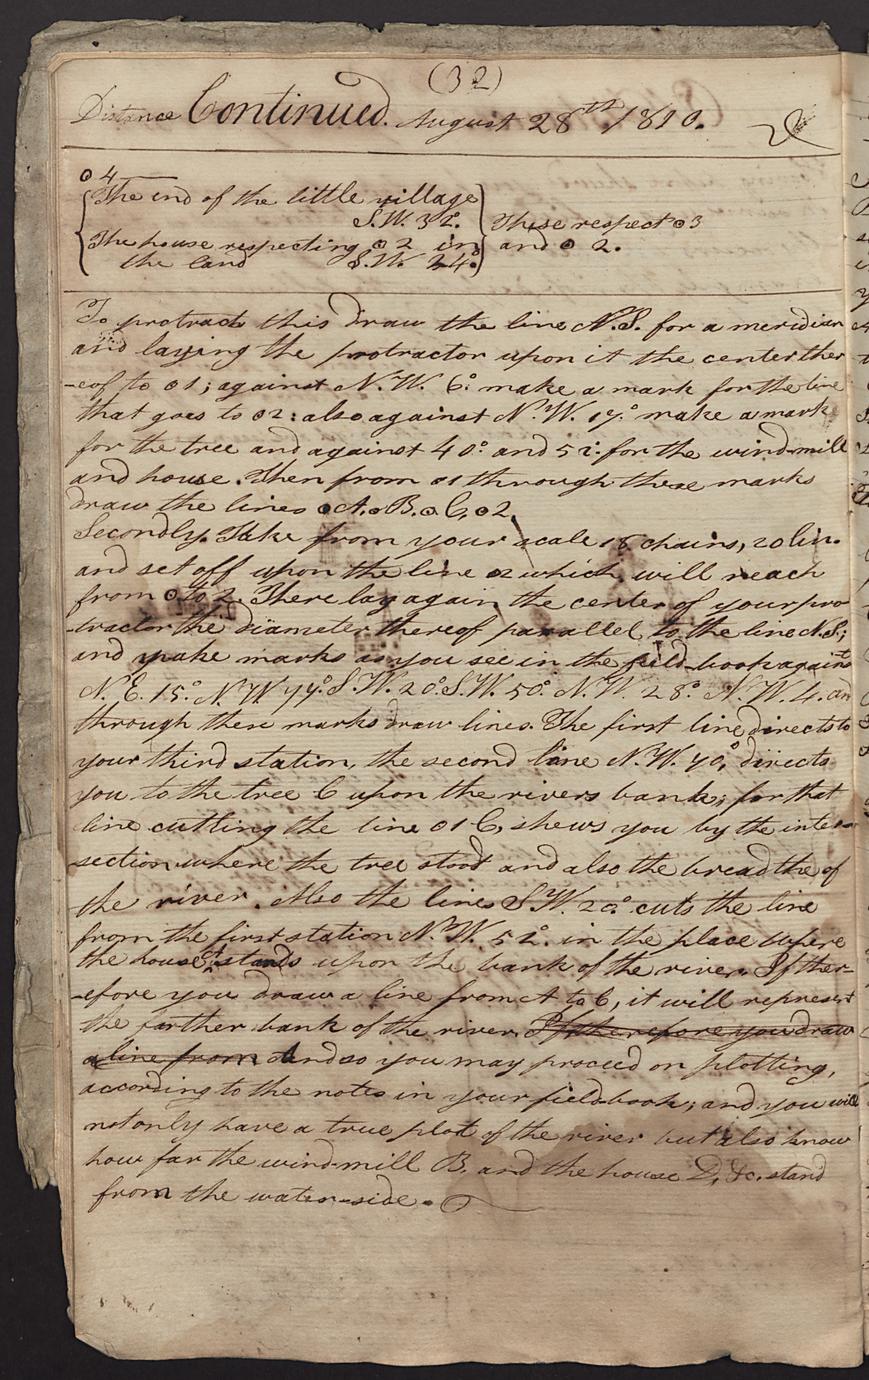 (32)
Distance Continued. August 28th 1810.
⊙4
The end of the little village
S.W. 32°.
The house respecting ⊙ 2 in
the land S.W. 24°
These respect ⊙3
and ⊙ 2.
To protract this draw the line N.S. for a meridian
and laying the protractor upon it the center ther
-eof to ⊙1; against N.W. 6° make a mark for the line
that goes to ⊙2: also against N.W. 17° make a mark
for the tree and against 40° and 52° for the wind-mill
and house. Then from ⊙1 through these marks
draw the lines ⊙A.⊙B.⊙C,⊙2.
Secondly. Take from your scale 18 chains, 20 lin.
and set off upon the line ⊙2 which, will reach
from ⊙ to 2. There lay again, the center of your pro-
-tractor the diameter thereof parallel, to the line N.S;
and make marks as you see in the field-book against
N.E. 15° N.W. 77° S.W. 20° S.W. 50° N.W. 28° N.W. 4. and
through these marks draw lines. The first line directs to
your third station, the second line N.W. 70°, directs
you to the tree C upon the rivers bank; for that
line cutting the line ⊙1 C, shews you by the inter-
section where the tree stood and also the breadthe of
the river. Also the line S.W. 20° cuts the line
from the first station N.W. 52° in the place where
the house stands upon the bank of the river. If ther-
-efore you draw a line from A to C, it will represent
the farther bank of the river. If therefore you draw
a line from And so you may proceed on plotting,
according to the notes in your field-book; and you will
not only have a true plot of the river but also know
how far the wind-mill B. and the house D, &c. stand
from the water-side.